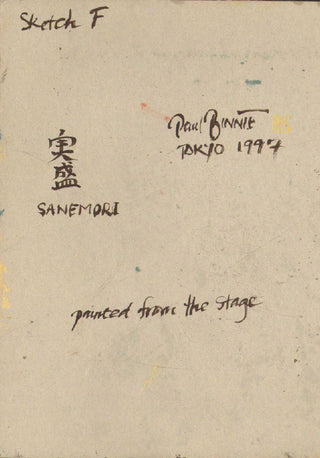 Sketch F
Paul BINNIE
TOKYO 1997
実盛
SANEMORI
painted from the stage